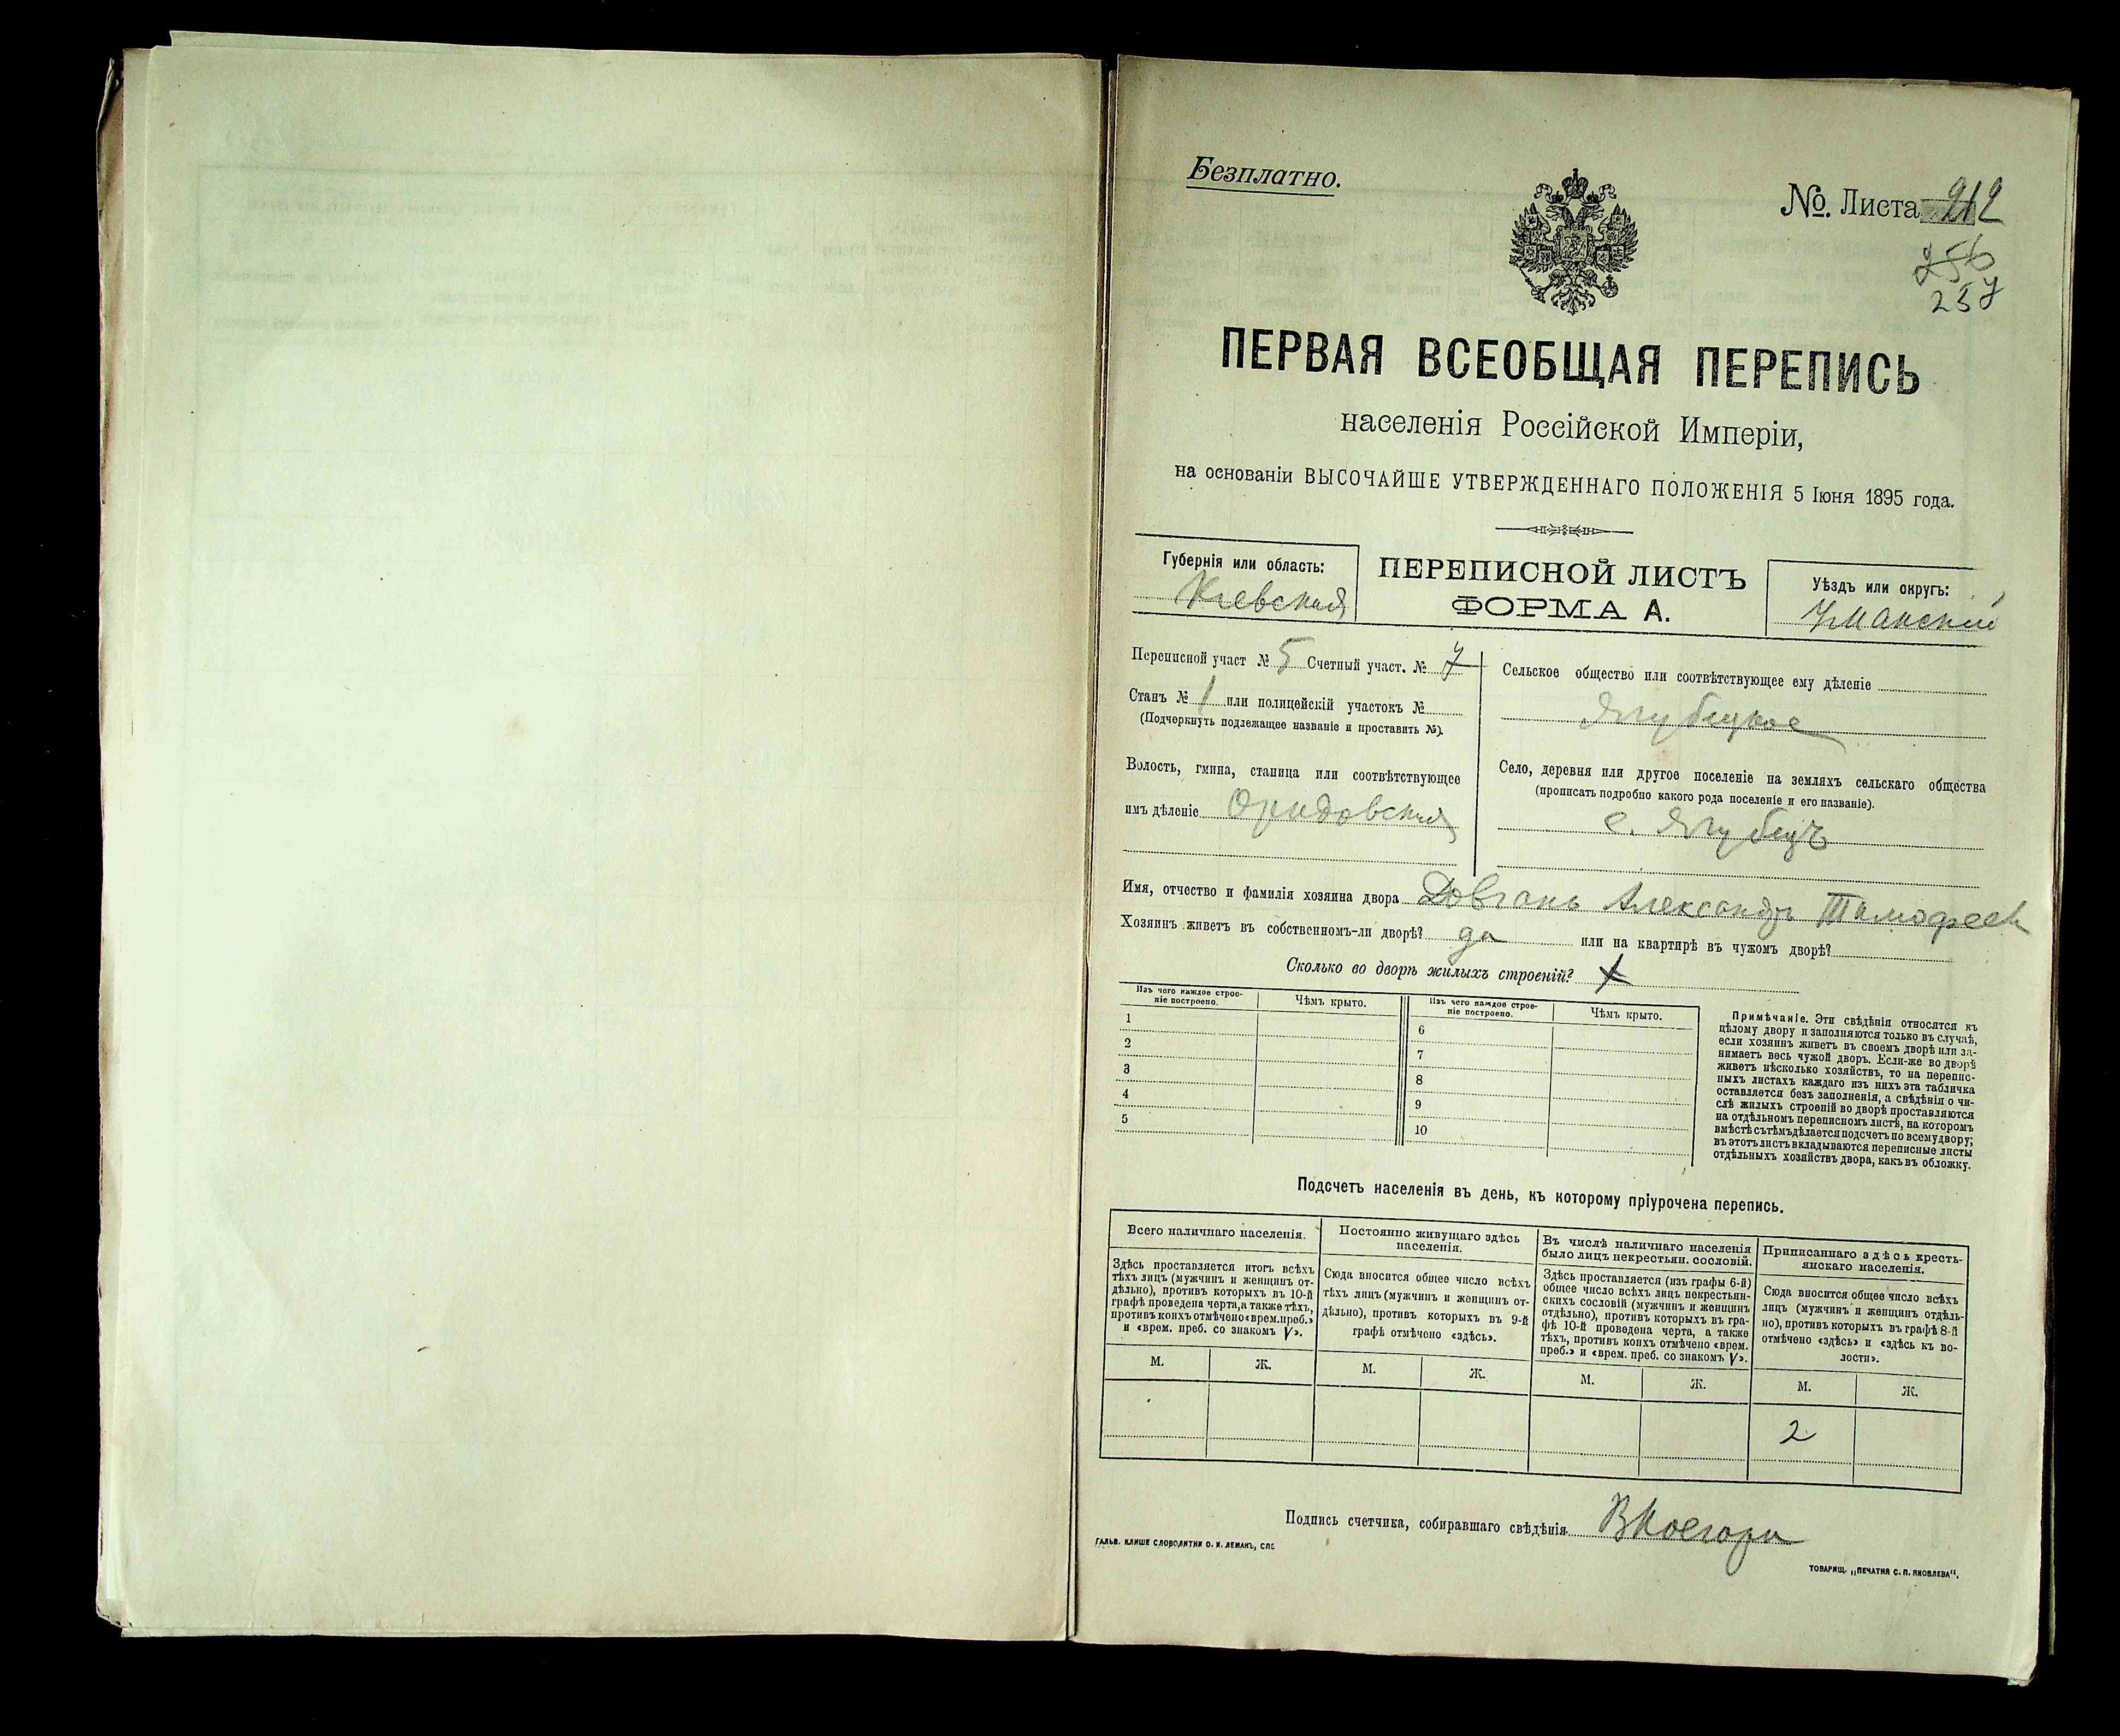 Безплатно.
№. Листа 212
256
257
ПЕРВАЯ ВСЕОБЩАЯ ПЕРЕПИСЬ
населенія Россійской Имперіи,
на основаніи ВЫСОЧАЙШЕ УТВЕРЖДЕННАГО ПОЛОЖЕНІЯ 5 Іюня 1895 года.
Губернія или область:
Кіевская
ПЕРЕПИСНОЙ ЛИСТЪ
ФОРМА А.
Уѣздъ или округъ:
Уманскій
Переписной участ № 5 Счетный участ. № 7
Станъ № 1 или полицейскій участокъ №
(Подчеркнуть подлежащее названіе и проставить №).
Волость, гмина, станица или соотвѣтствующее
имъ дѣленіе
Сельское общество или соотвѣтствующее ему дѣленіе
Ягубецкое
Село, деревня или другое поселеніе на земляхъ сельскаго общества
(прописать подробно какого рода поселеніе и его названіе).
с. Ягубецъ
Имя, отчество и фамилія хозяина двора Довгань Александръ Тимофеев
Хозяинъ живетъ въ собственномъ-ли дворѣ? да или на квартирѣ въ чужомъ дворѣ?
Сколько во дворѣ жилыхъ строеній?
Изъ чего каждое строе-
ніе построено.
Чѣмъ крыто.
Изъ чего каждое строе-
ніе построено.
Чѣмъ крыто.
1
2
3
4
5
6
7
8
9
10
Примѣчаніе. Эти свѣдѣнія относятся къ
цѣлому двору и заполняются только въ случаѣ,
если хозяинъ живетъ въ своемъ дворѣ или за-
нимаетъ весь чужой дворъ. Если-же во дворѣ
живетъ нѣсколько хозяйствъ, то на перепис-
ныхъ листахъ каждаго изъ нихъ эта табличка
оставляется безъ заполненія, а свѣдѣнія о чи-
слѣ жилыхъ строеній во дворѣ проставляются
на отдѣльномъ переписномъ листѣ, на которомъ
вмѣстѣ съ тѣмъ дѣлается подсчетъ по всему двору;
въ этотъ листъ вкладываются переписные листы
отдѣльныхъ хозяйствъ двора, какъ въ обложку.
Подсчетъ населенія въ день, къ которому пріурочена перепись.
Всего наличнаго населенія.
Здѣсь проставляется итогъ всѣхъ
тѣхъ лицъ (мужчинъ и женщинъ от-
дѣльно), противъ которыхъ въ 10-й
графѣ проведена черта, а также тѣхъ,
противъ коихъ отмѣчено «врем. преб.»
и «врем. преб. со знакомъ V».
М. Ж.
Постоянно живущаго здѣсь
населенія.
Сюда вносится общее число всѣхъ
тѣхъ лицъ (мужчинъ и женщинъ от-
дѣльно), противъ которыхъ въ 9-й
графѣ отмѣчено «здѣсь».
М. Ж.
Въ числѣ наличнаго населенія
было лицъ некрестьян. сословій.
Здѣсь проставляется (изъ графы 6-й)
общее число всѣхъ лицъ некрестьян-
скихъ сословій (мужчинъ и женщинъ
отдѣльно), противъ которыхъ въ гра-
фѣ 10-й проведена черта, а также
тѣхъ, противъ коихъ отмѣчено «врем.
преб.» и «врем. преб. со знакомъ V».
М. Ж.
Приписаннаго здѣсь кресть-
янскаго населенія.
Сюда вносится общее число всѣхъ
лицъ (мужчинъ и женщинъ отдѣль-
но), противъ которыхъ въ графѣ 8-й
отмѣчено «здѣсь» и «здѣсь къ во-
лости».
М. Ж.
2
Подпись счетчика, собиравшаго свѣдѣнія
ГАЛЬВ. КЛИШЕ СЛОВОЛИТНИ О. И. ЛЕМАНЪ, СПБ
ТОВАРИЩ. „ПЕЧАТНЯ С. П. ЯКОВЛЕВА“.